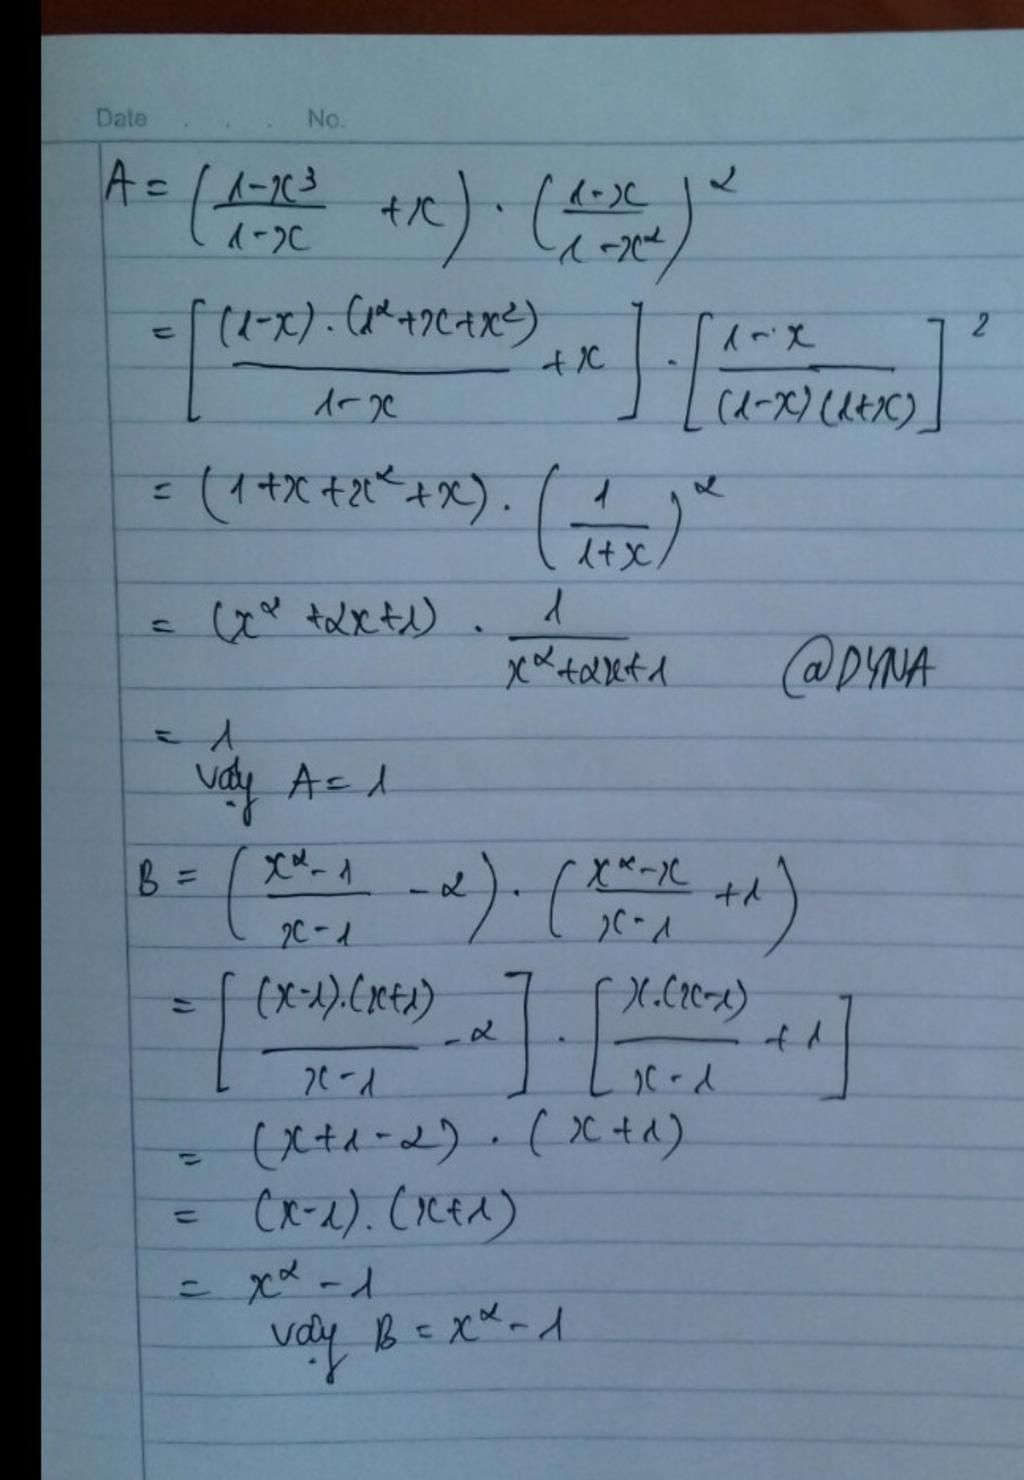 Date . . . No.
A = ( (1-x³)/(1-x) + x ) · ( (1-x)/(1-x²) )²
= [ ((1-x).(1²+x+x²))/(1-x) + x ] · [ (1-x)/((1-x)(1+x)) ]²
= (1+x+x²+x) · ( 1/(1+x) )²
= (x²+2x+1) · 1/(x²+2x+1) @DYNA
= 1
vậy A = 1
B = ( (x²-1)/(x-1) - 2 ) · ( (x²-x)/(x-1) + 1 )
= [ ((x-1).(x+1))/(x-1) - 2 ] · [ (x.(x-1))/(x-1) + 1 ]
= (x+1-2) · (x+1)
= (x-1).(x+1)
= x² - 1
vậy B = x² - 1